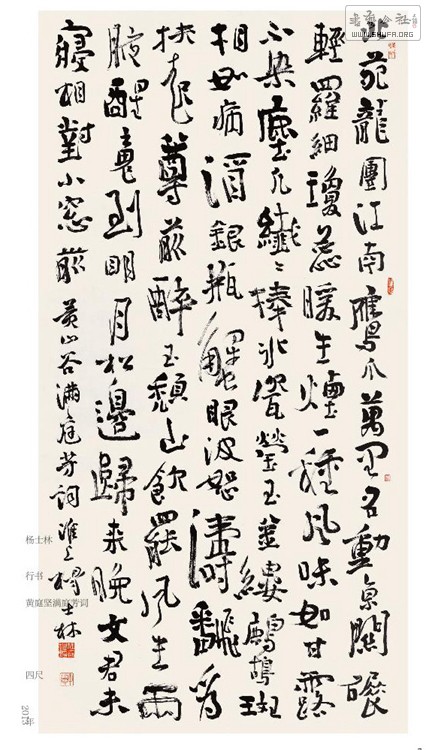 北苑龍團江南鷹爪萬里名動京關碾
輕羅細瓊蕊暖生煙一種風味如甘露
不染塵凡纖々捧冰瓷瑩玉金縷鷓鴣斑
相如病酒銀瓶蟹眼波怒濤翻為
扶起尊前醉玉頹山飲罷風生兩
腋醒魂到明月松邊歸来晚文君未
寢相對小窓前 黄山谷滿庭芳詞淮上楊士林
杨士林
行书
黄庭坚满庭芳词
四尺
2013年
WWW.SHUFA.ORG